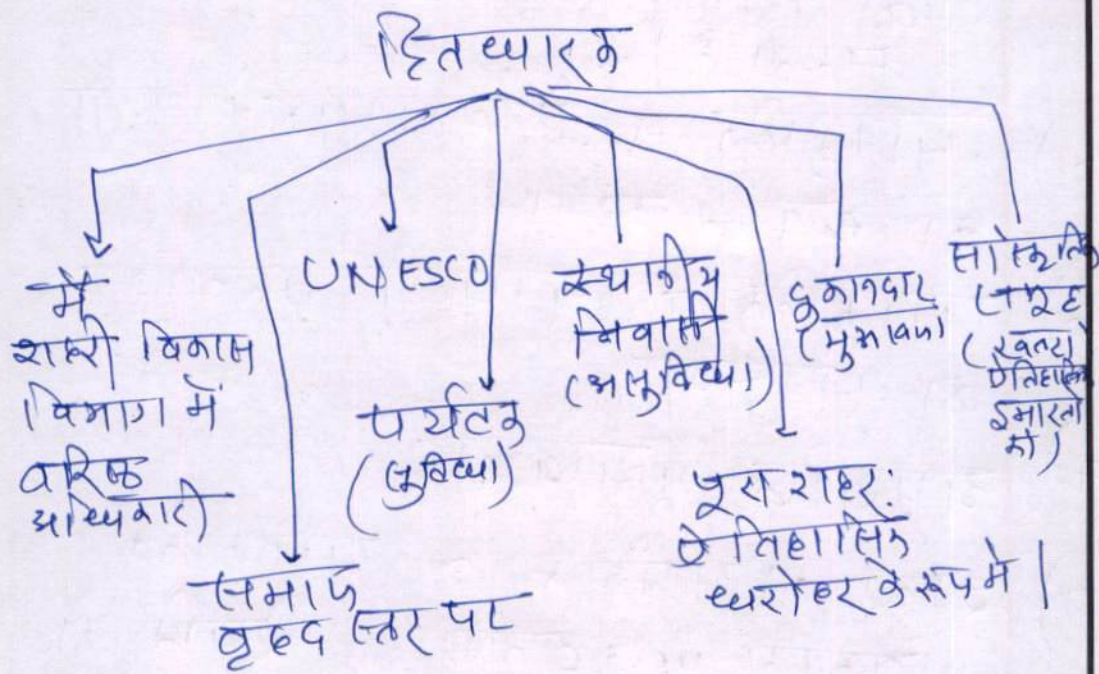 हितधारक
मैं
शहरी विकास
विभाग में
वरिष्ठ
अधिकारी
समाज
वृहद स्तर पर
UNESCO
पर्यटक
(सुविधा)
स्थानीय
निवासी
(असुविधा)
पूरा शहर:
ऐतिहासिक
धरोहर के रूप में।
दुकानदार
(मुआवजा)
सांस्कृतिक
समूह
(खतरा
ऐतिहासिक
इमारतों
को)